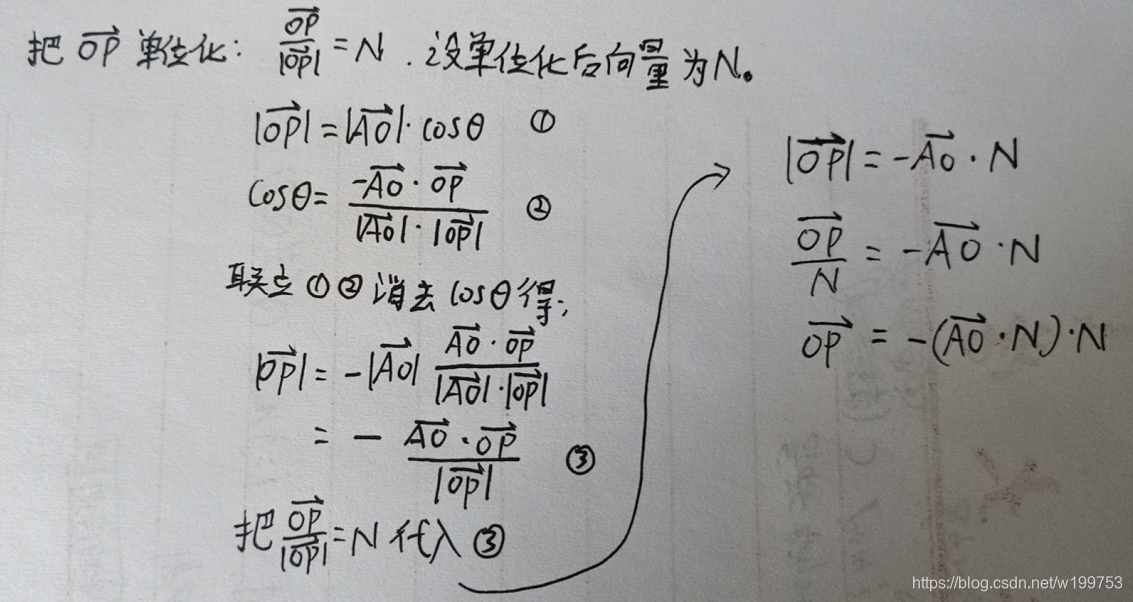 把 \overrightarrow{OP} 单位化: \frac{\overrightarrow{OP}}{|\overrightarrow{OP}|} = N . 设单位化后向量为N。
|\overrightarrow{OP}| = |\overrightarrow{AO}|·cosθ ①
cosθ = \frac{-\overrightarrow{AO}·\overrightarrow{OP}}{|\overrightarrow{AO}|·|\overrightarrow{OP}|} ②
联立①②消去cosθ得;
|\overrightarrow{OP}| = -|\overrightarrow{AO}| \frac{\overrightarrow{AO}·\overrightarrow{OP}}{|\overrightarrow{AO}|·|\overrightarrow{OP}|}
= - \frac{\overrightarrow{AO}·\overrightarrow{OP}}{|\overrightarrow{OP}|} ③
把 \frac{\overrightarrow{OP}}{|\overrightarrow{OP}|} = N 代入③
|\overrightarrow{OP}| = -\overrightarrow{AO}·N
\frac{\overrightarrow{OP}}{N} = -\overrightarrow{AO}·N
\overrightarrow{OP} = -(\overrightarrow{AO}·N)·N
https://blog.csdn.net/w199753